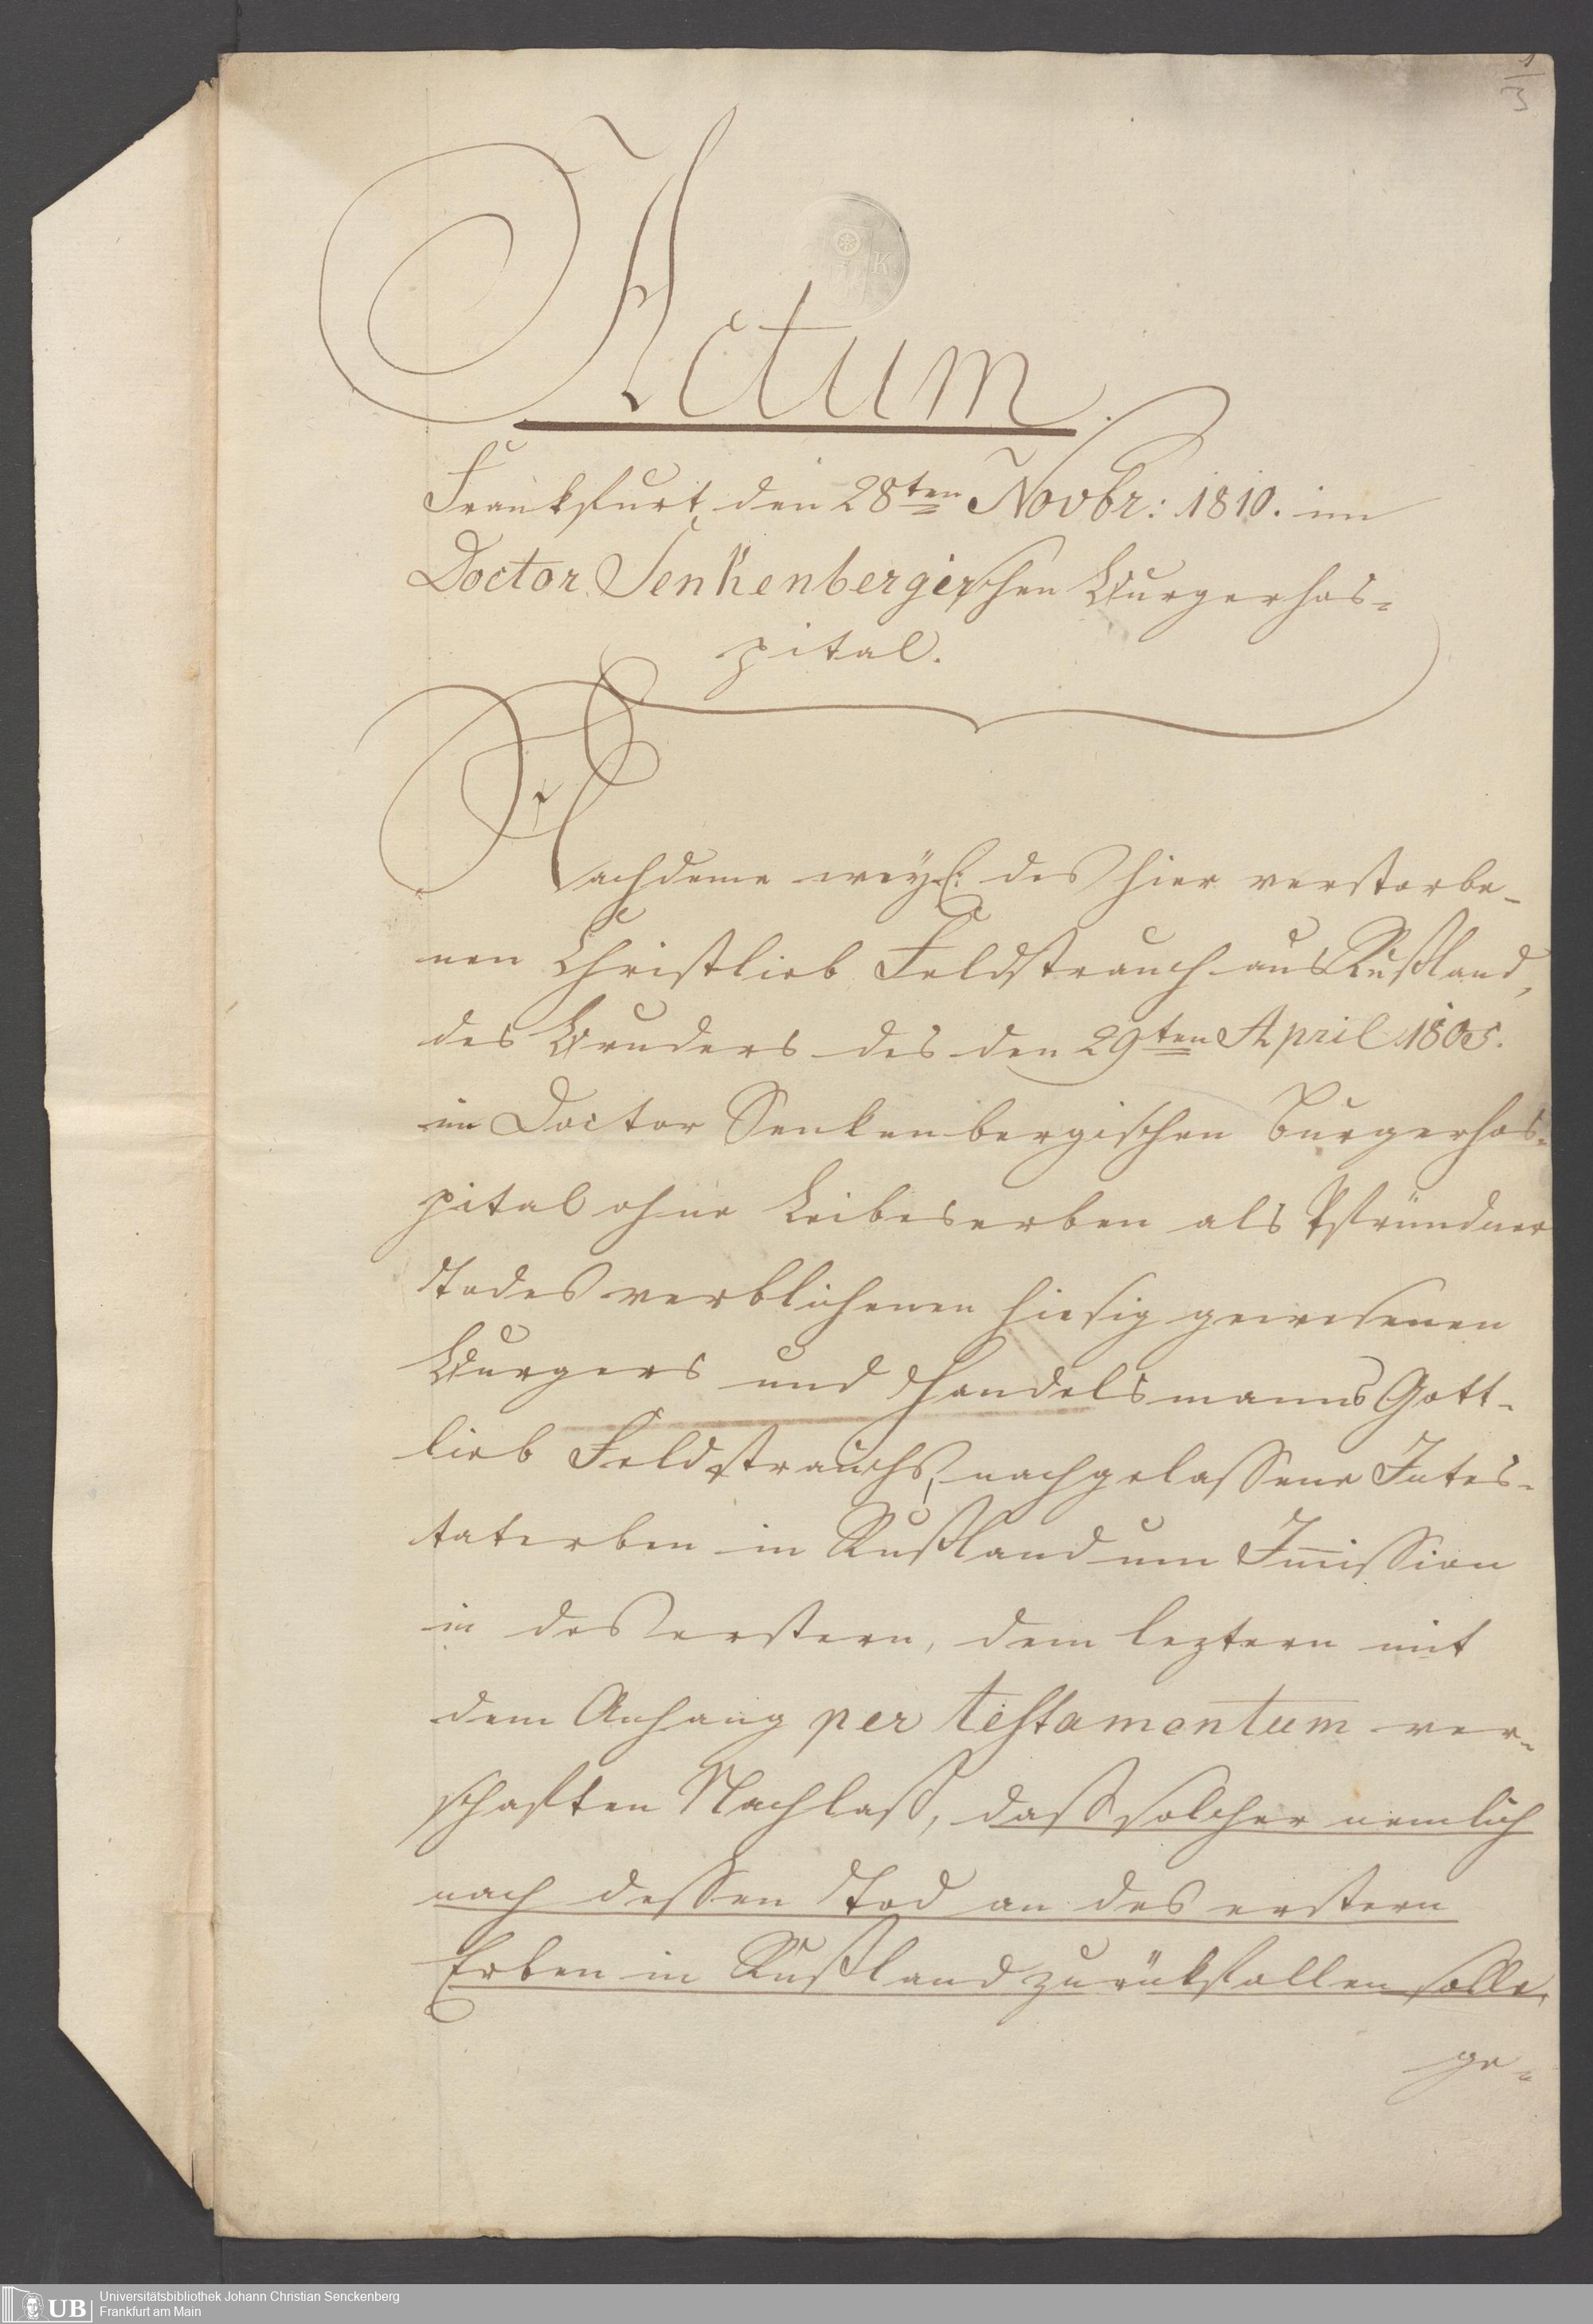 1/3
Actum.
Frankfurt, den 28ten Novbr: 1810. im
Doctor Senkenbergischen Burgerhos-
pital.
Nachdeme weyl: des hier verstorbe-
nen Christlieb Feldstrauch aus Rußland,
des Bruders des den 29ten April 1805.
im Doctor Senkenbergischen Burgerhos-
pital ohne Leibeserben als Pfründner
Todes verblichenen hiesig gewesenen
Burgers und Handelsmanns Gott-
lieb Feldstrauchs, nachgelassene Intes-
taterben in Rußland um Im̅ission
in des erstern, dem leztern mit
dem Anhang per testamentum ver-
schaften Nachlaß, daß solcher nemlich
nach dessen Tod an des erstern
Erben in Rußland zurükfallen solle,
ge-
K
UB
Universitätsbibliothek Johann Christian Senckenberg
Frankfurt am Main